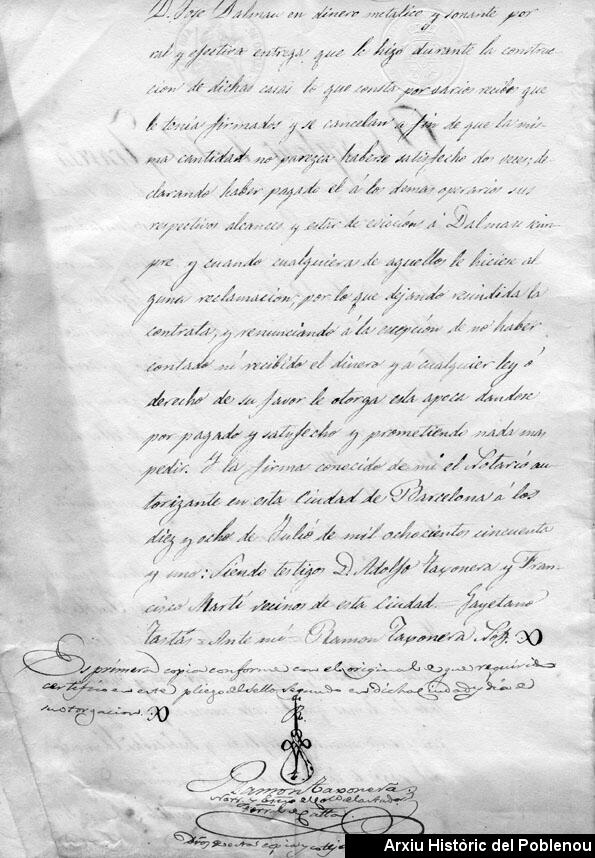 D. Jose Dalmau en dinero metalico y sonante por
ral y efectiva entrega que le hizo durante la construc-
cion de dichas casas lo que consta por varios recibos que
le tenia firmados y se cancelan a fin de que la mis-
ma cantidad no parezca haberse satisfecho dos veces; de-
clarando haber pagado él á los demas operarios sus
respectivos alcances y estar de eviccion á Dalmau siem-
pre y cuando cualquiera de aquellos le hiciese al
guna reclamacion; por lo que dejando rescindida la
contrata, y renunciando á la escepcion de no haber
contado ni recibido el dinero y a cualquier ley ó
derecho de su favor le otorga esta apoca dandose
por pagado y satisfecho y prometiendo nada mas
pedir. Y la firma conocido de mi el Notario au-
torizante en esta Ciudad de Barcelona á los
diez y ocho de Julio de mil ochocientos cincuenta
y uno: Siendo testigos D. Adolfo Taxonera y Fran-
cisco Martí vecinos de esta Ciudad = Gayetano
Tastás = Ante mi = Ramon Taxonera. Not.
Es primera copia conforme con el original e que requirido
certifico en este pliego del sello segundo en dicha ciudad y dia de
su otorgacion.
Ramon Taxonera
Arxiu Històric del Poblenou